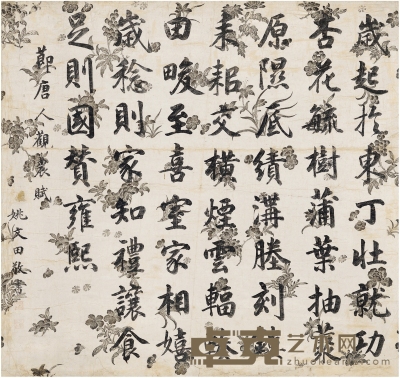 歲起於東丁壮就功
杏花毓樹蒲葉抽叢
原隰底績溝塍刻
耒耜交橫煙雲輻
田畯至喜室家相嬉
歲稔則家知禮讓食
足則國贊雍熙
節唐人觀農賦
姚文田敬書